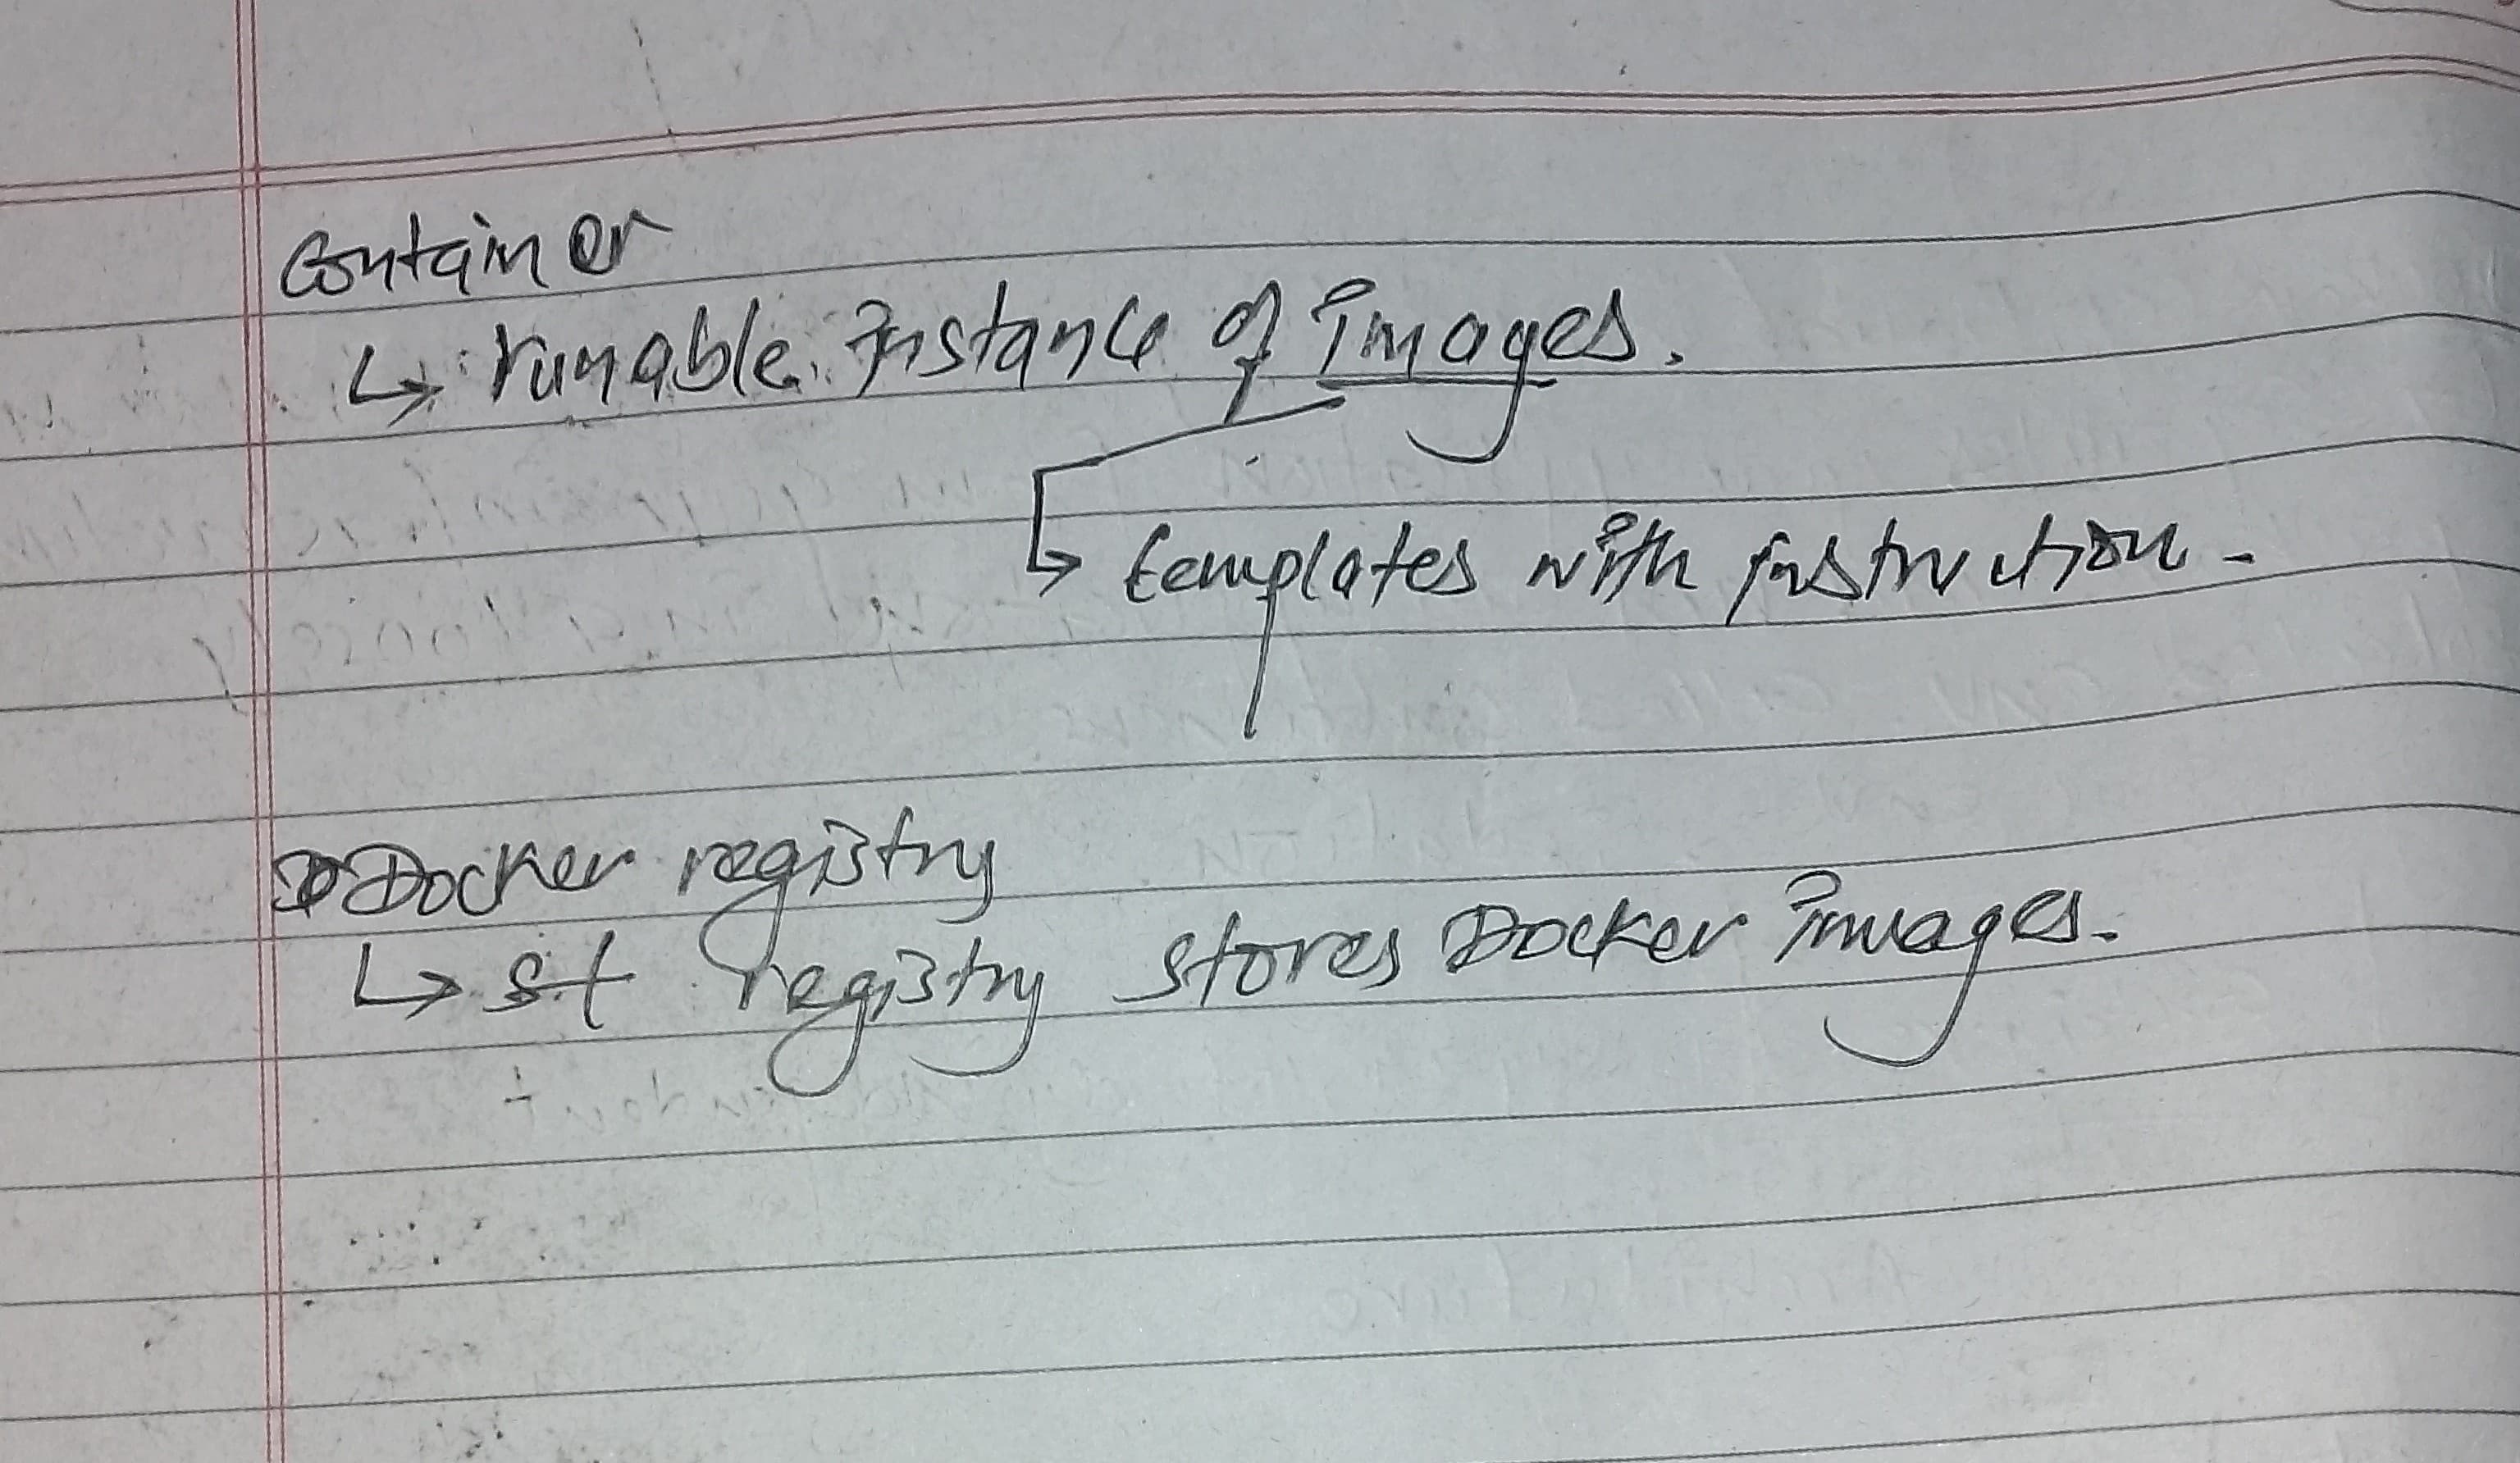 Container
↳ runable instance of images.
↳ templates with instruction.
Docker registry
↳ st registry stores Docker images.